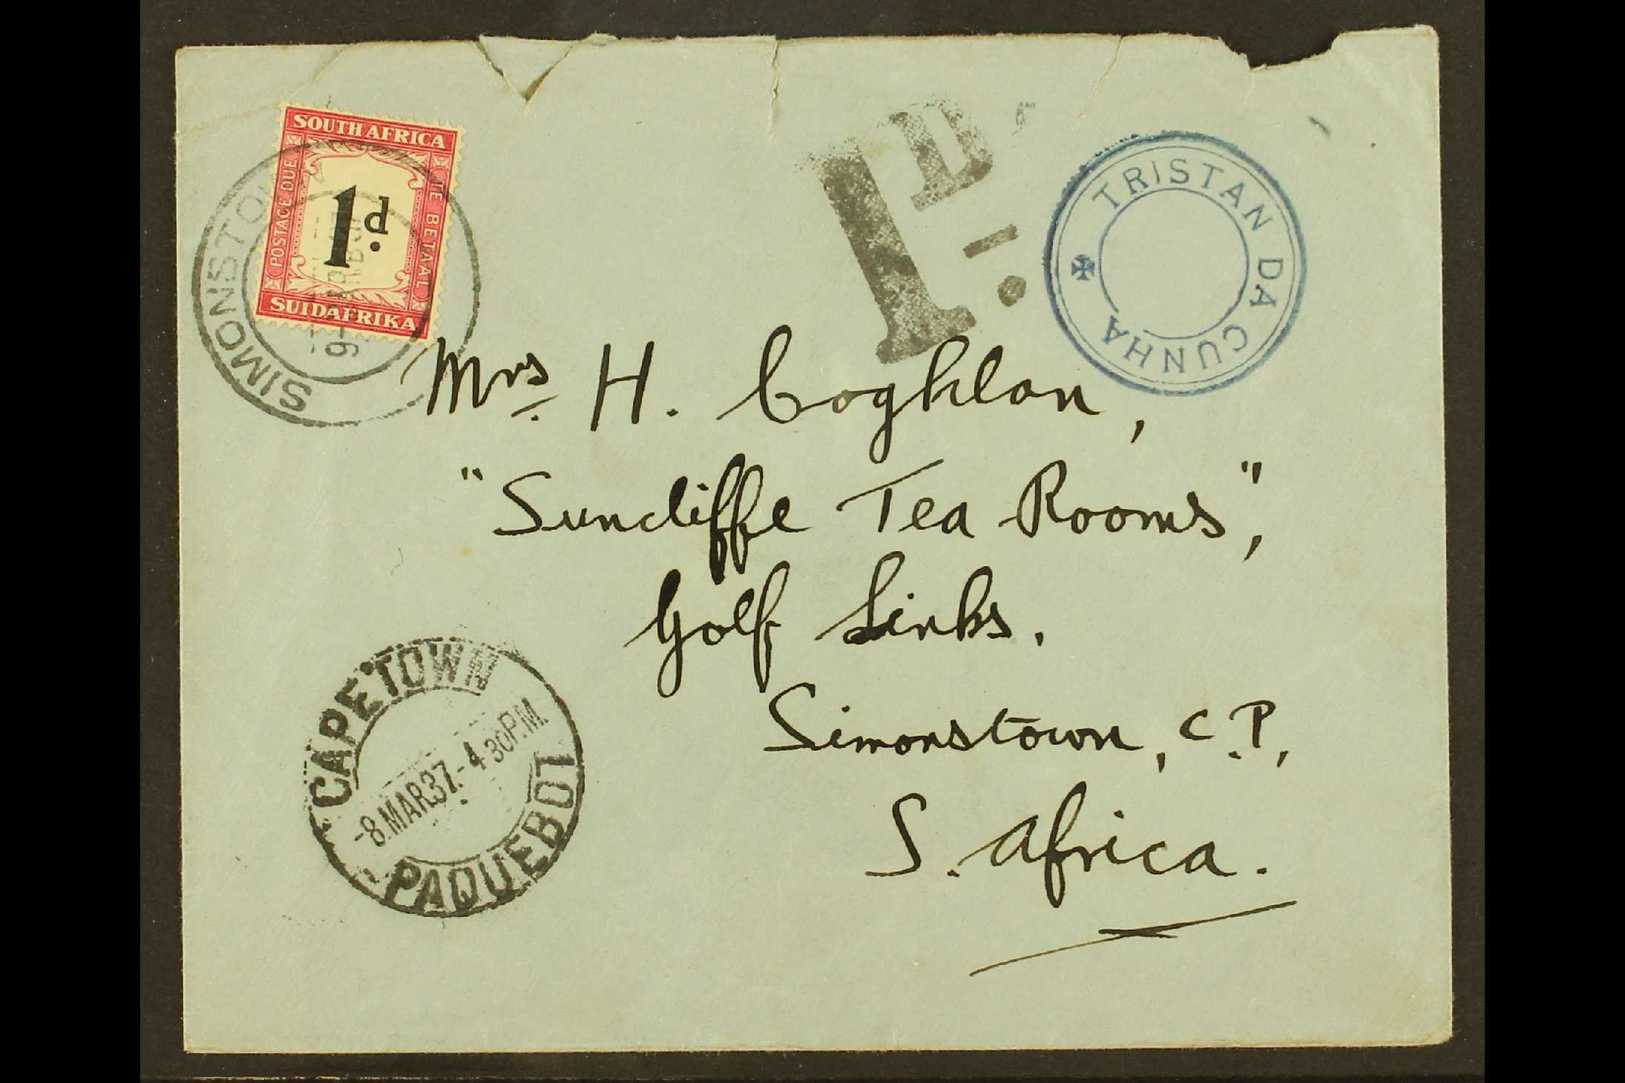 SOUTH AFRICA
POSTAGE DUE
TE BETAAL
1d.
SUIDAFRIKA
SIMONSTOWN
1D.
TRISTAN DA CUNHA
Mrs. H. Coghlan,
"Suncliffe Tea Rooms",
Golf Links.
Simonstown, C.P.,
S. Africa.
CAPETOWN
-8.MAR37.-4 30P.M.
PAQUEBOT